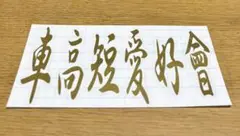 車高短愛好會